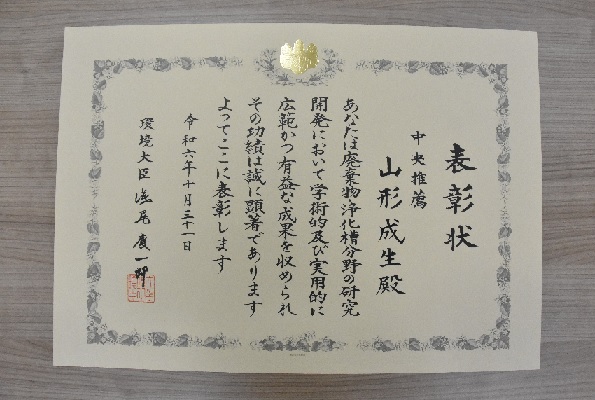 表彰状
中央推薦
山形成生殿
あなたは廃棄物浄化槽分野の研究
開発において学術的及び実用的に
広範かつ有益な成果を収められ
その功績は誠に顕著であります
よってここに表彰します
令和六年十月三十一日
環境大臣 浅尾慶一郎